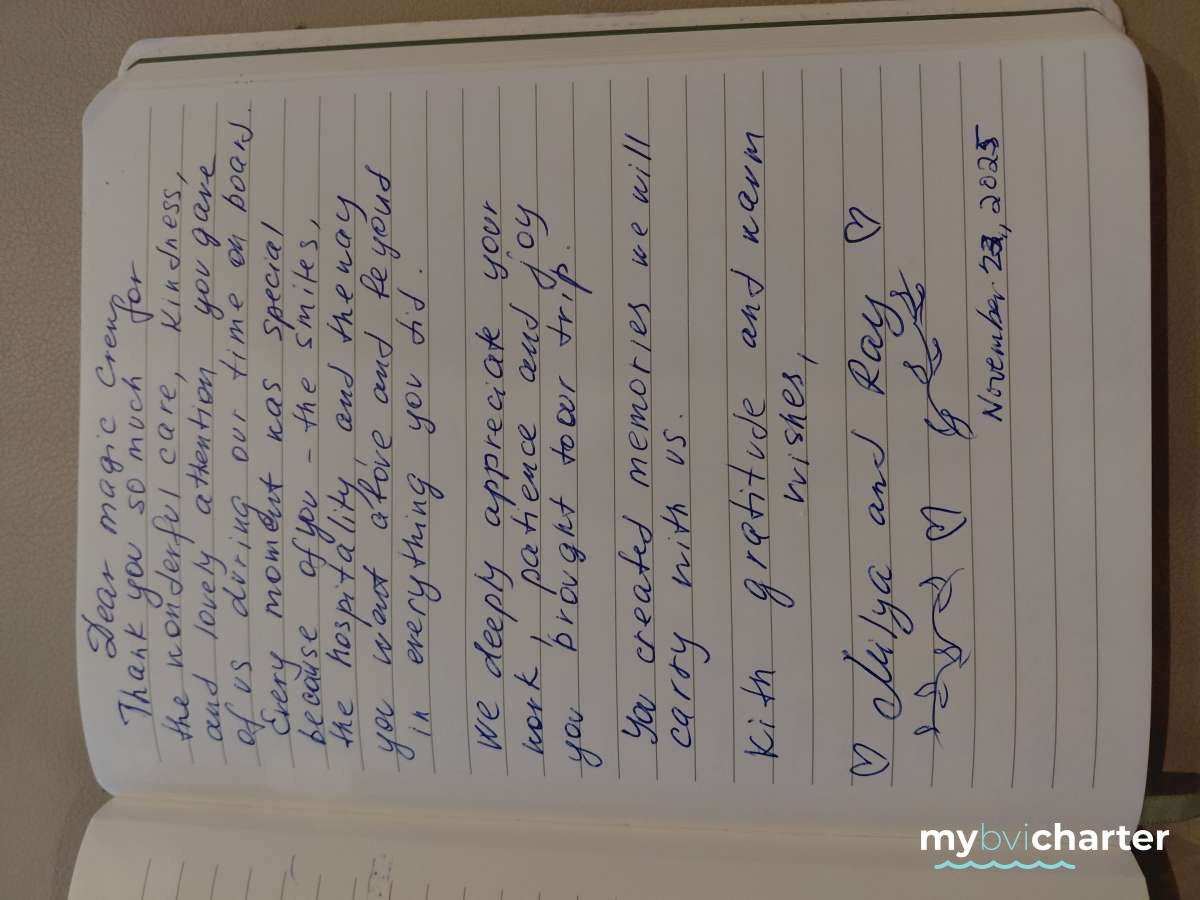 Dear magic Crew
Thank you so much for
the wonderful care, kindness,
and lovely attention you gave
of us during our time on board.
Every moment was special
because of you - the smiles,
the hospitality and the way
you went above and beyound
in everything you did.
We deeply appreciate your
work, patience and joy
you brought to our trip.
You created memories we will
carry with us.
With gratitude and warm
wishes,
♡ Milya and Ray ♡
November 23, 2025
mybvicharter